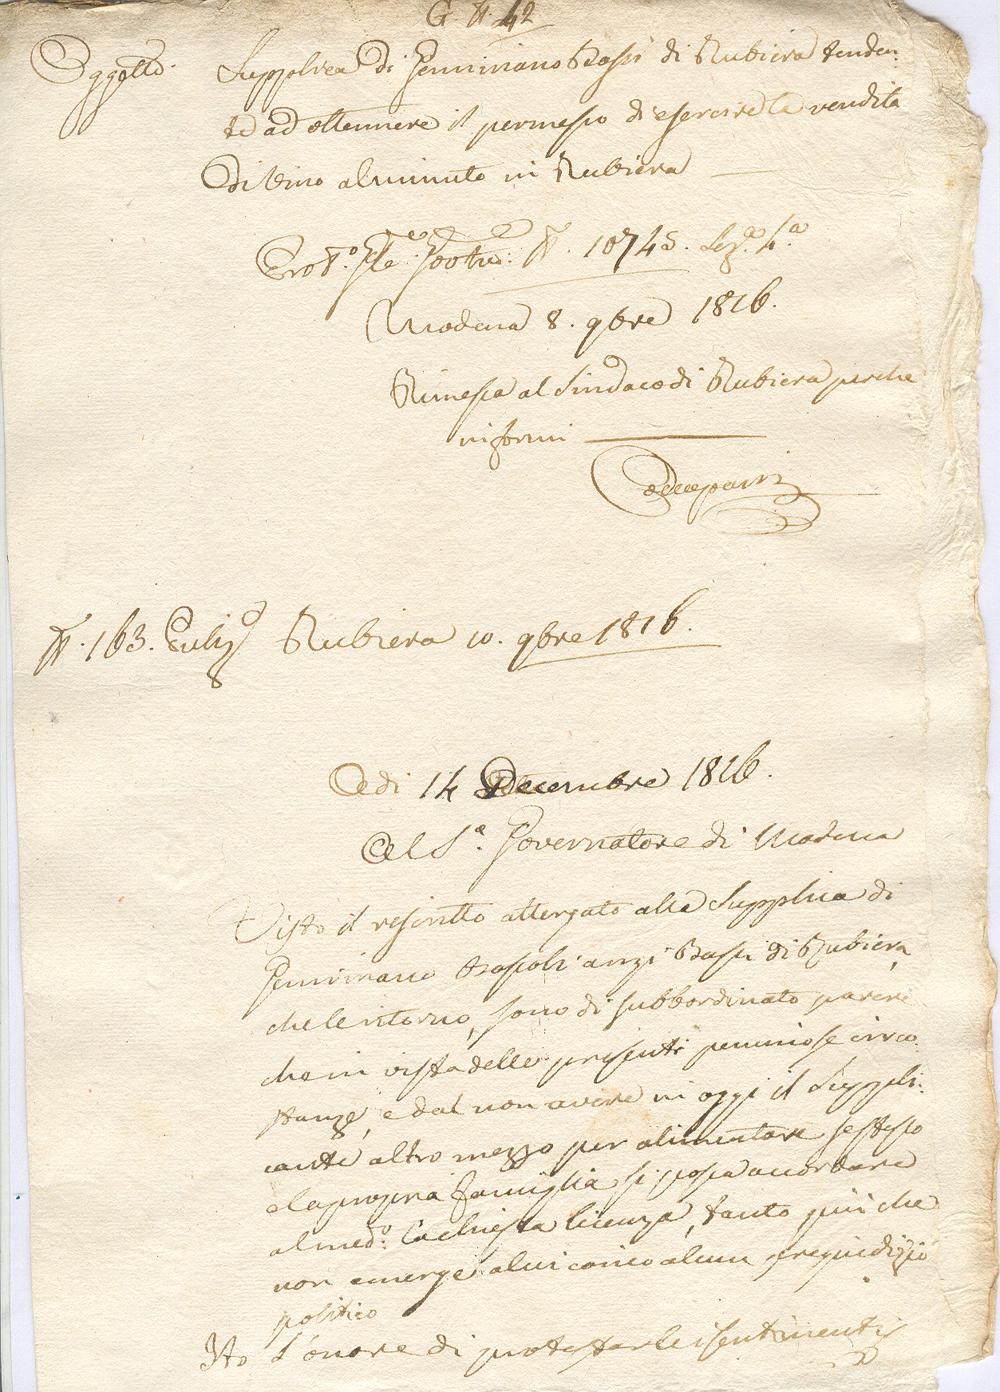 G N. 42
Oggetto. Supplica di Geminiano Bassi di Rubiera tenden-
te ad ottennere il permesso di esercire la vendita
di Vino al minuto in Rubiera
N. 10745. Sez.e 4.a
Modena 8. 9bre 1816.
Rimessa al Sindaco di Rubiera perche
informi
N. 163. Rubiera 10. 9bre 1816.
Adi 14 Decembre 1816.
Al S.r Governatore di Modena
Visto il rescritto attergato alla Supplica di
Geminiano anzi Bassi di Rubiera,
che le ritorno, sono di subbordinato parere
che in vista delle presenti penuriose circo-
stanze, e dal non avere in oggi il Suppli-
cante altro mezzo per alimentare se stesso
e la propria famiglia si possa accordare
al med.o la chiesta licenza, tanto più che
non emerge a lui carico alcun pregiudizio
politico
Ho l'onore di protestarle i sentimenti